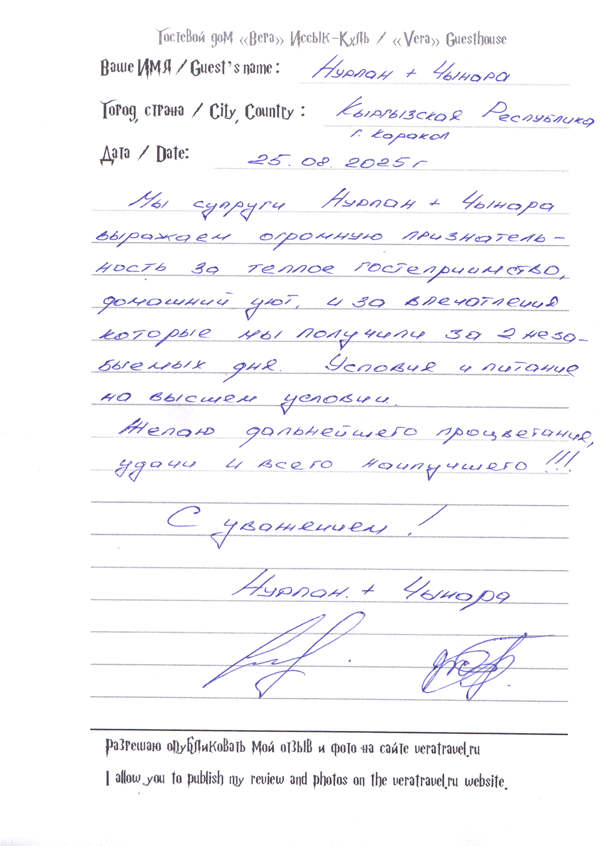 Гостевой дом «Вера» Иссык-Куль / «Vera» Guesthouse
Ваше ИМЯ / Guest's name: Нурлан + Чынара
Город, страна / City, Country: Кыргызская Республика
г. Каракол
Дата / Date: 25.08.2025г
Мы супруги Нурлан + Чынара
выражаем огромную признатель-
ность за теплое гостеприимство,
домашний уют, и за впечатления
которые мы получили за 2 неза-
быемых дня. Условия и питание
на высшем условии.
Желаю дальнейшего процветания,
удачи и всего наилучшего!!!
С уважением!
Нурлан. + Чынара
Разрешаю опубликовать мой отзыв и фото на сайте veratravel.ru
I allow you to publish my review and photos on the veratravel.ru website.